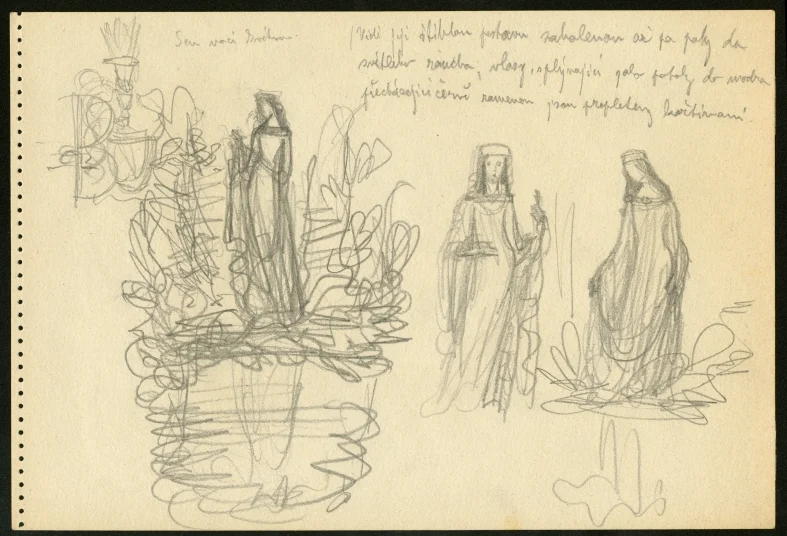 Sen noci
Vidí její štíhlou postavu zahalenou až po paty do
světlého roucha, vlasy, splývající jako potoky do modra
přecházející černě ramenou jsou propleteny květinami.